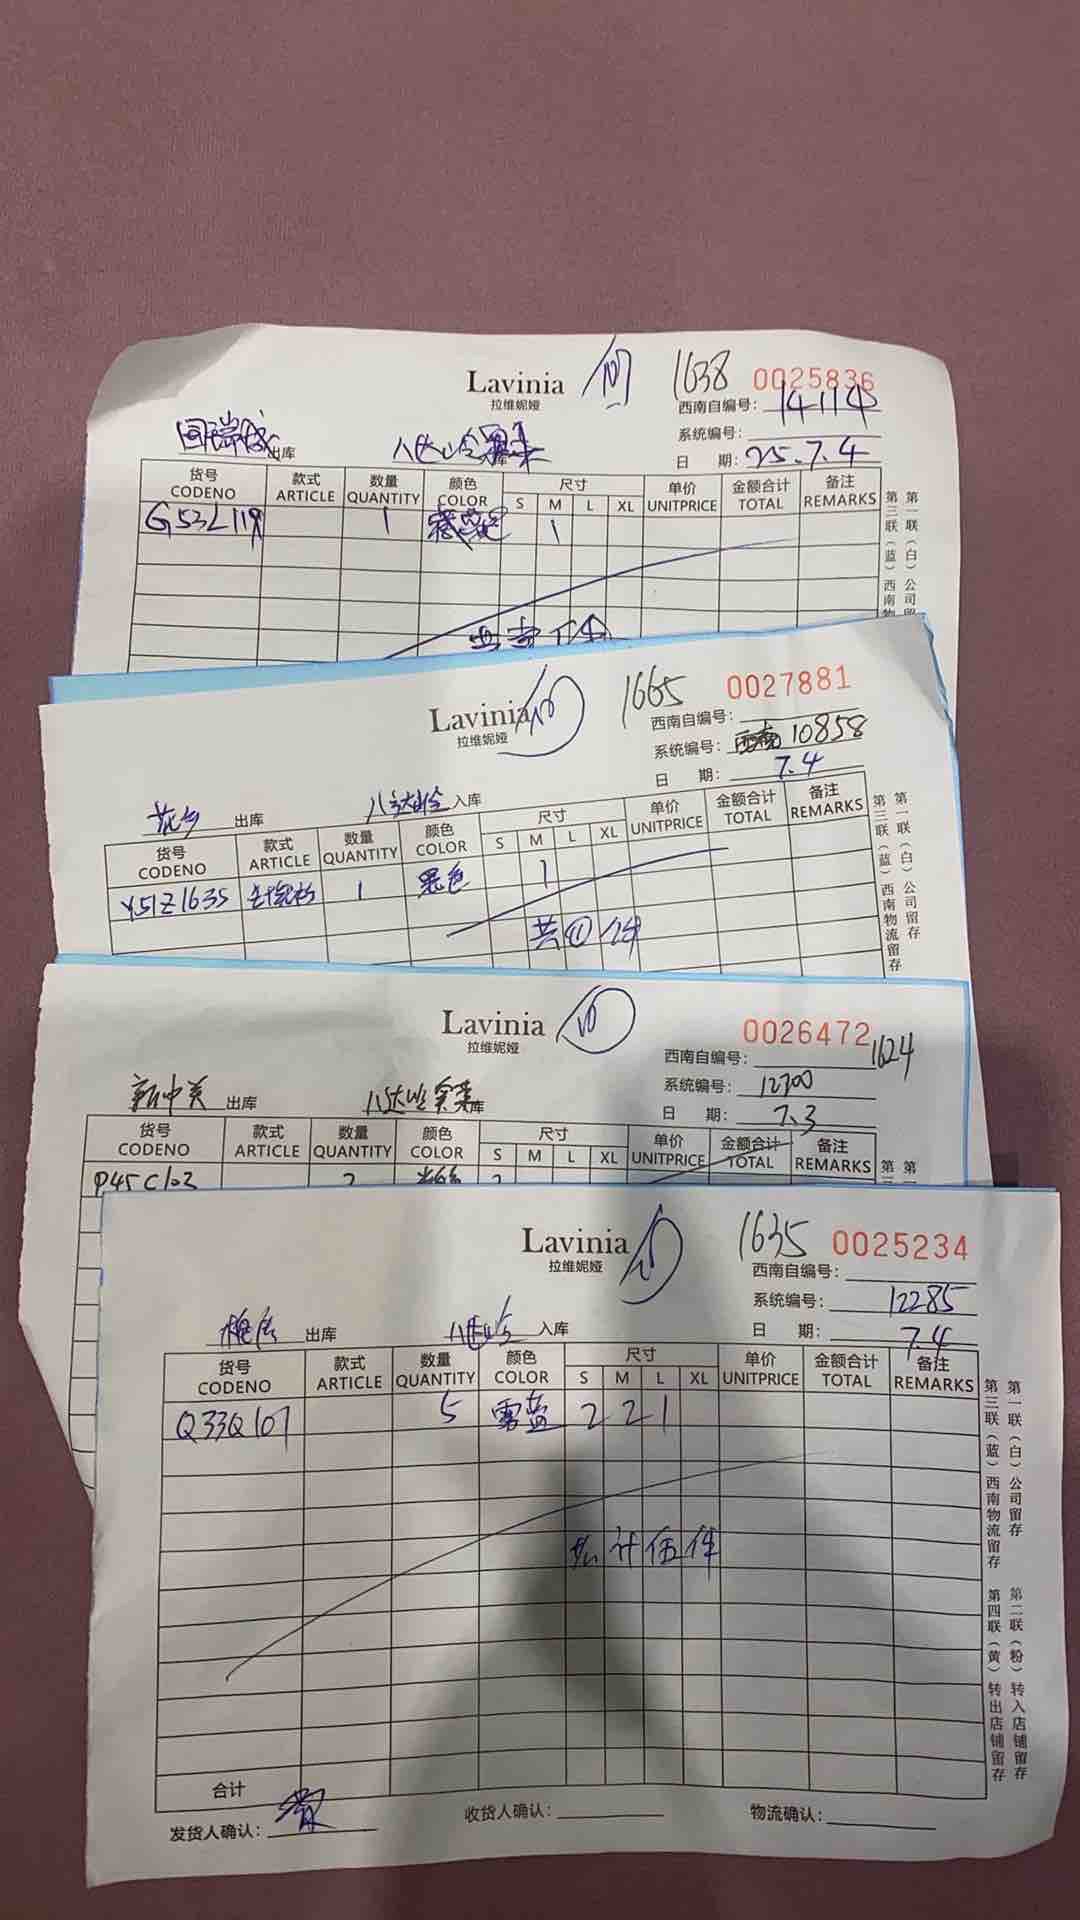 Lavinia 1638 0025836
拉维妮娅
西南自编号: 14114
系统编号:
日 期: 25.7.4
出库 八达岭奥莱库
货号 CODENO 款式 ARTICLE 数量 QUANTITY 颜色 COLOR 尺寸 S M L XL 单价 UNITPRICE 金额合计 TOTAL 备注 REMARKS
G53L119 1 1
第一联(白)公司
第三联(蓝)西南物
Lavinia 1665 0027881
拉维妮娅
西南自编号:
系统编号: 10858
日 期: 7.4
花乡 出库 八达岭 入库
货号 CODENO 款式 ARTICLE 数量 QUANTITY 颜色 COLOR 尺寸 S M L XL 单价 UNITPRICE 金额合计 TOTAL 备注 REMARKS
Y51Z1635 1 黑色 1
共①件
第一联(白)公司留存
第三联(蓝)西南物流留存
Lavinia 0026472
拉维妮娅
西南自编号: 1624
系统编号: 12300
日 期: 7.3
新中关 出库 八达岭奥莱库
货号 CODENO 款式 ARTICLE 数量 QUANTITY 颜色 COLOR 尺寸 S M L XL 单价 UNITPRICE 金额合计 TOTAL 备注 REMARKS
P45C103 2 2
第一
第三
Lavinia 1635 0025234
拉维妮娅
西南自编号:
系统编号: 12285
日 期: 7.4
出库 八达岭 入库
货号 CODENO 款式 ARTICLE 数量 QUANTITY 颜色 COLOR 尺寸 S M L XL 单价 UNITPRICE 金额合计 TOTAL 备注 REMARKS
Q33Q107 5 雾蓝 2 2 1
共计伍件
第一联(白)公司留存 第二联(粉)转入店铺留存
第三联(蓝)西南物流留存 第四联(黄)转出店铺留存
合计
发货人确认: 收货人确认: 物流确认: